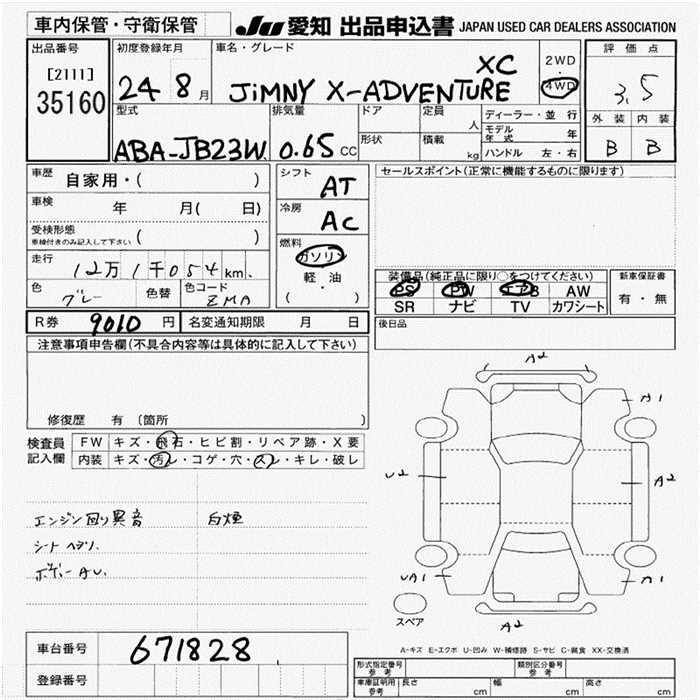 車内保管・守衛保管
JU 愛知 出品申込書 JAPAN USED CAR DEALERS ASSOCIATION
出品番号
[2111]
35160
初度登録年月
24 8 月
車名・グレード
XC
JiMNY X-ADVENTURE
2WD
・
4WD
評価点
3.5
外装 内装
B B
型式
ABA-JB23W
排気量
0.65 CC
ドア
形状
定員
人
積載
kg
ディーラー・並行
モデル年式 年
ハンドル 左・右
車歴 自家用・( )
車検 年 月( 日)
受検形態
車検付きのみ記入して下さい ( )
走行 12万1千054km.
色 グレー 色替 色コード ZMA
シフト AT
冷房 AC
燃料
ガソリン
・
軽油
( )
セールスポイント(正常に機能するものに限ります)
装備品(純正品に限り○をつけてください)
PS PW エアB AW
SR ナビ TV カワシート
新車保証書
有・無
R券 9010 円 名変通知期限 月 日
後日品
注意事項申告欄(不具合内容等は具体的に記入して下さい)
修復歴 有(箇所 )
検査員
記入欄
FW キズ・飛石・ヒビ割・リペア跡・X要
内装 キズ・汚レ・コゲ・穴・スレ・キレ・破レ
エンジン回り異音 白煙
シートヘタリ.
ボデーAU.
A2
A1
U2
A2
UA1
A1
A2
スペア
A-キズ E-エクボ U-凹み W-補修跡 S-サビ C-腐食 XX-交換済
車台番号 671828
登録番号
形式指定番号
参考
類別区分番号
参考
車庫証明用
参考
長さ cm 幅 cm 高さ cm